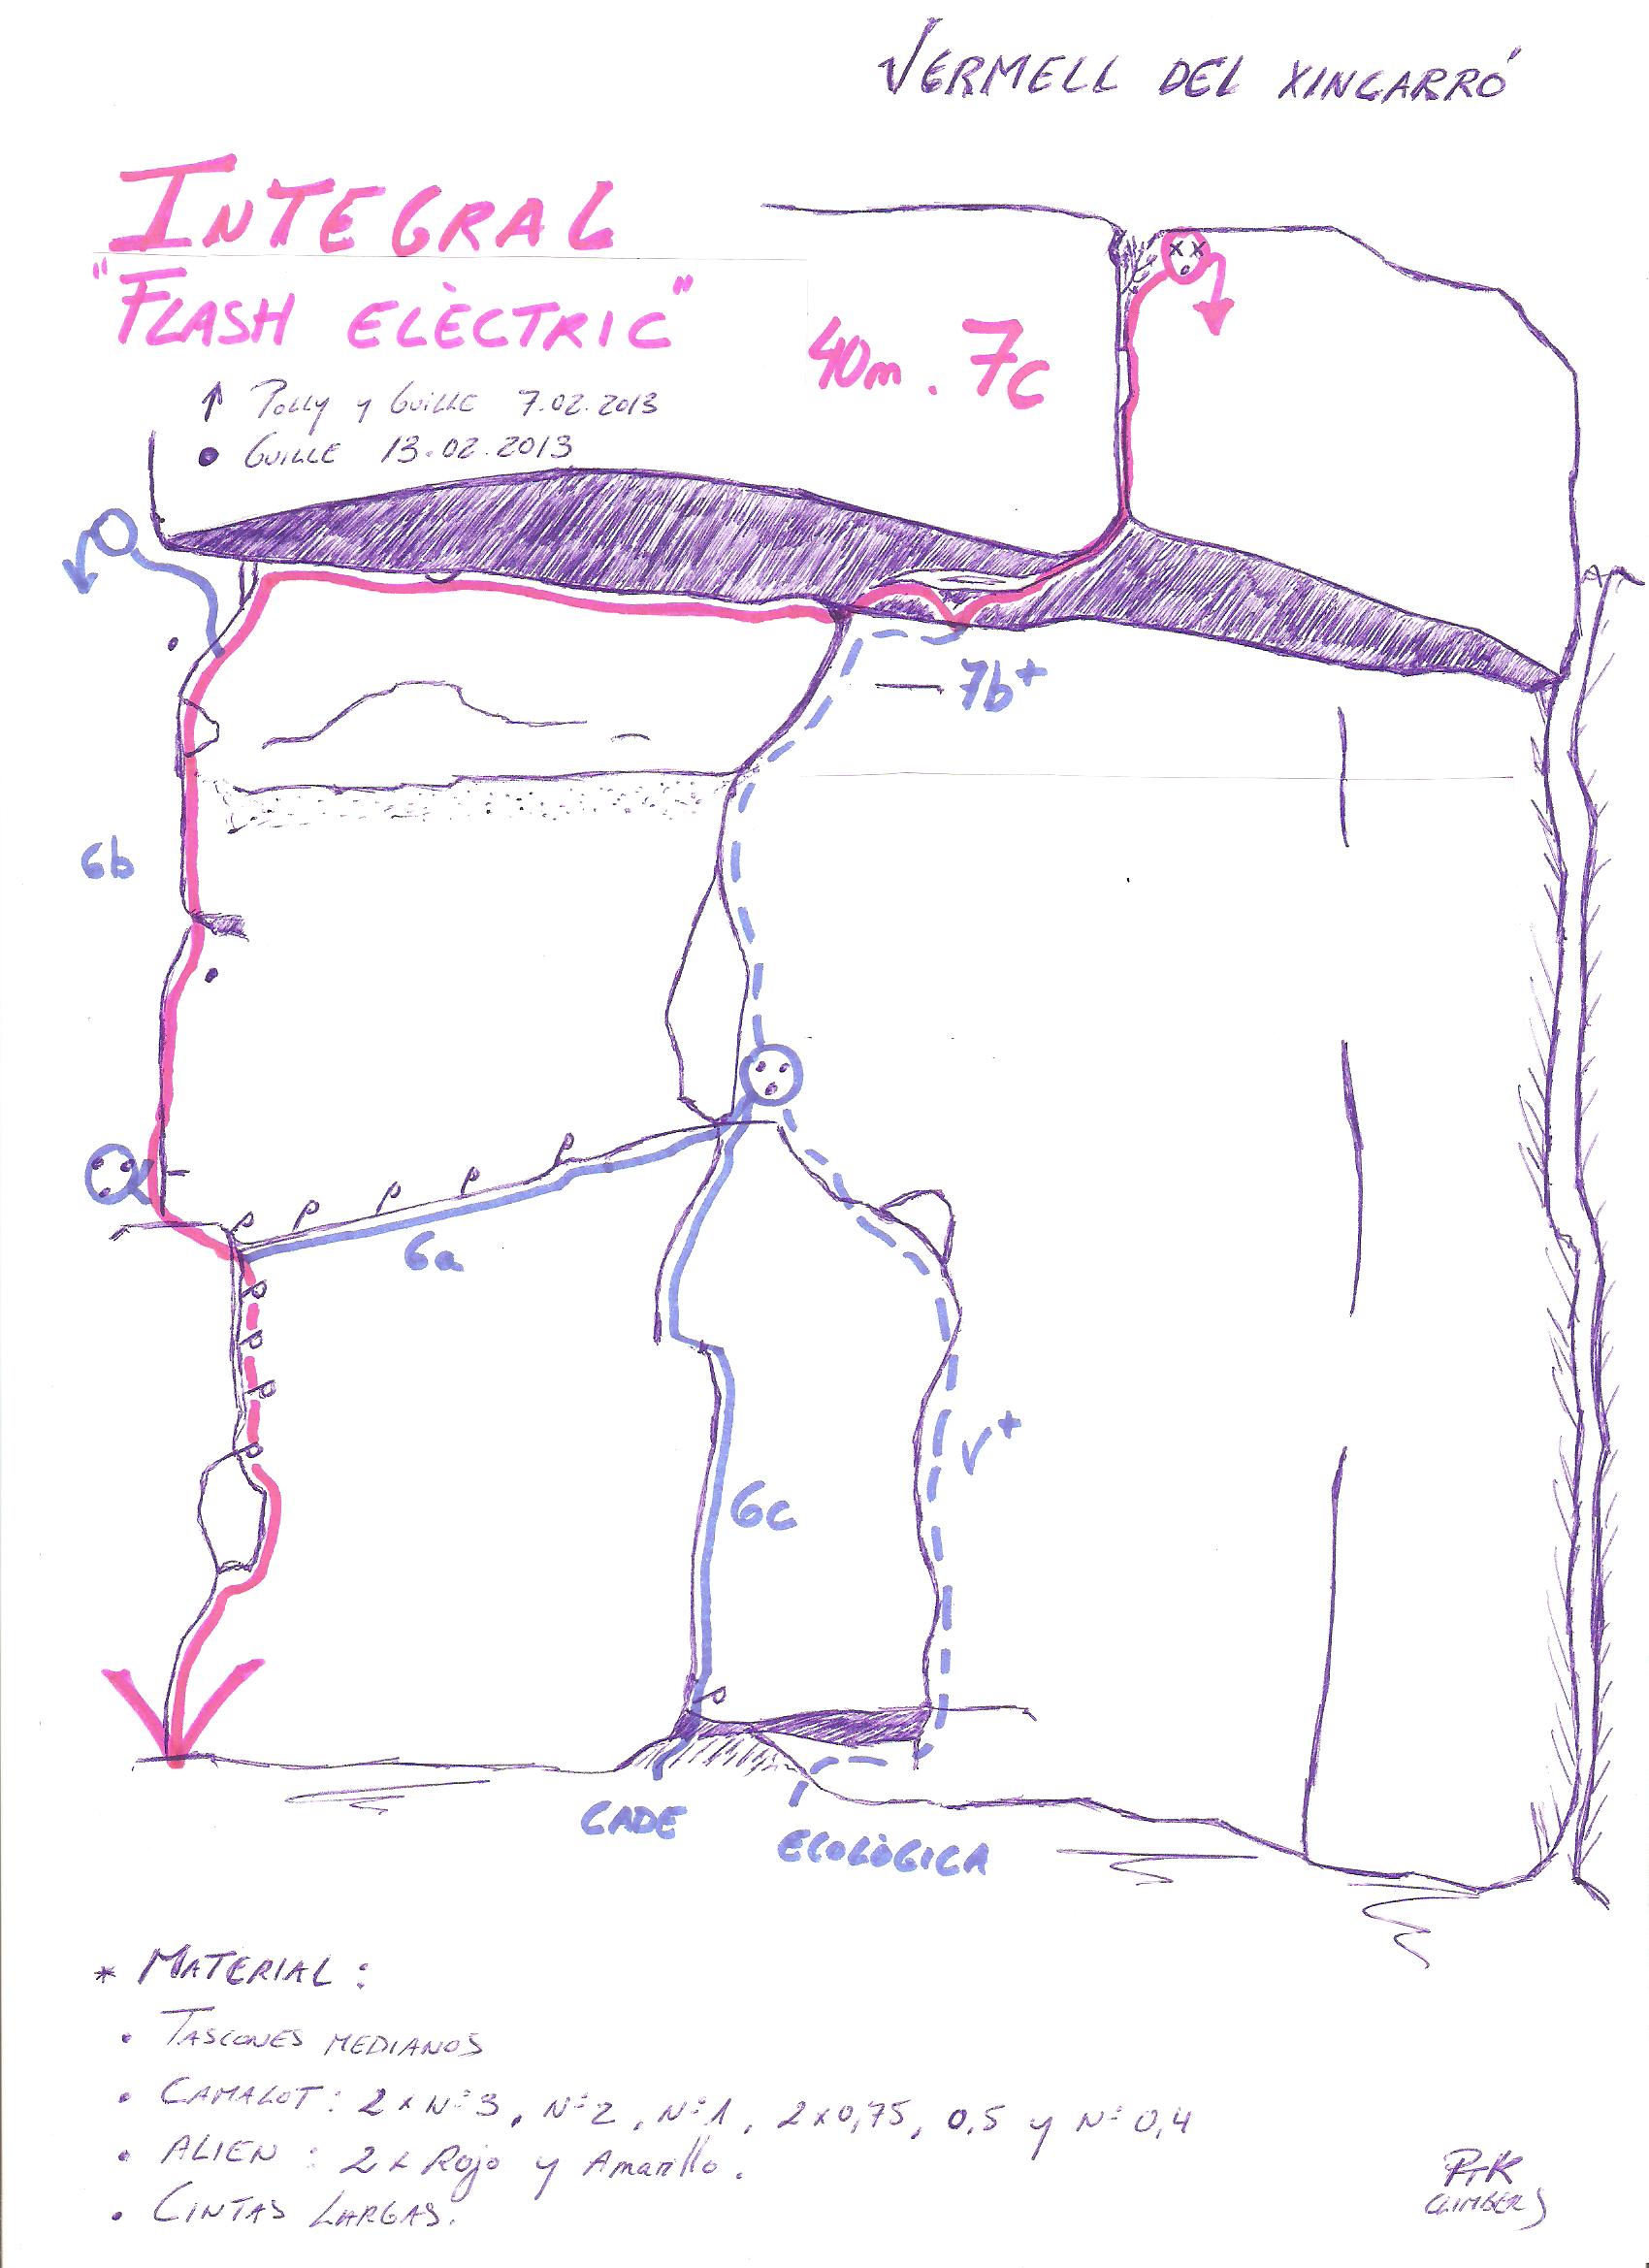 VERMELL DEL XINCARRÓ
INTEGRAL
"FLASH ELÈCTRIC"
40m. 7c
↑ Polly y Guille 7.02.2013
● Guille 13.02.2013
7b+
6b
6a
V+
6c
CADE
ECOLÒGICA
* MATERIAL:
• TASCONES MEDIANOS
• CAMALOT: 2 x Nº3, Nº2, Nº1, 2x0,75, 0,5 y Nº 0,4
• ALIEN: 2 x Rojo y Amarillo.
• CINTAS LARGAS.
PTK
CLIMBERS